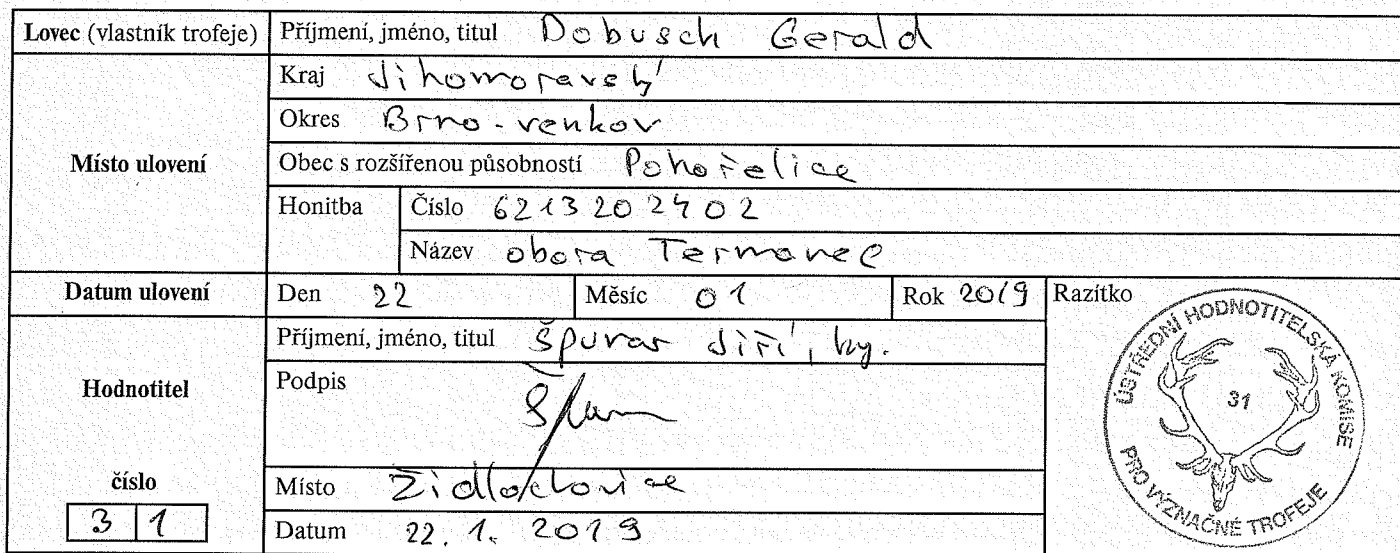 Lovec (vlastník trofeje) Příjmení, jméno, titul Dobusch Gerald
Kraj Jihomoravský
Okres Brno-venkov
Místo ulovení Obec s rozšířenou působností Pohořelice
Honitba Číslo 6213202402
Název obora Termanec
Datum ulovení Den 22 Měsíc 01 Rok 2019 Razítko
Příjmení, jméno, titul Špurar Jiří, Ing.
Hodnotitel Podpis
číslo Místo Židlochovice
31 Datum 22. 1. 2019
ÚSTŘEDNÍ HODNOTITELSKÁ KOMISE
31
PRO VÝZNAČNÉ TROFEJE